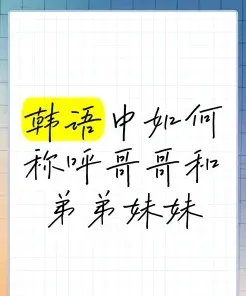 韩语中如何
称呼哥哥和
弟弟妹妹